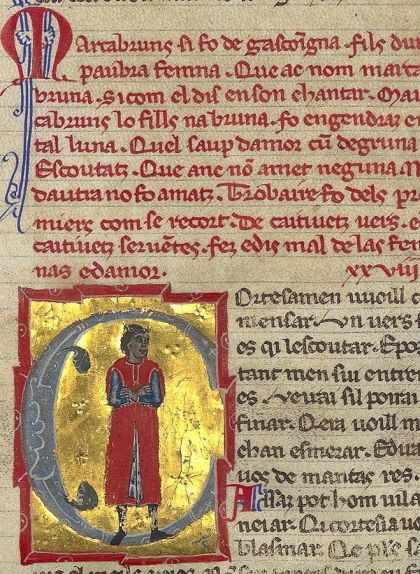 Marcabruns si fo de gascoingna. fils du
paubra femna. Que ac nom marca
bruna. si com el dis en son chantar. Mar
cabruns lo fills na bruna. fo engendraz en
tal luna. Quel saup damor cũ degruna
Escoutatz. Que anc nõ amet neguna. N
dautra no fo amatz. Trobaire fo dels pr
miers com se recort. De caitiuetz uers. e
caitiuetz seruẽtes. fez e dis mal de las fem
nas e damor. xxviii
Cortesamen uuoill
mensar. Un uers
es qi lescoutar. E pos
tant men sui entrem
es. Veirai sil porai
finar. Qera uoill m
chan esmerar. E dirai
uos de mantas res.
pot hom uila
neiar. Qi cortesia uo
blasmar. Qe